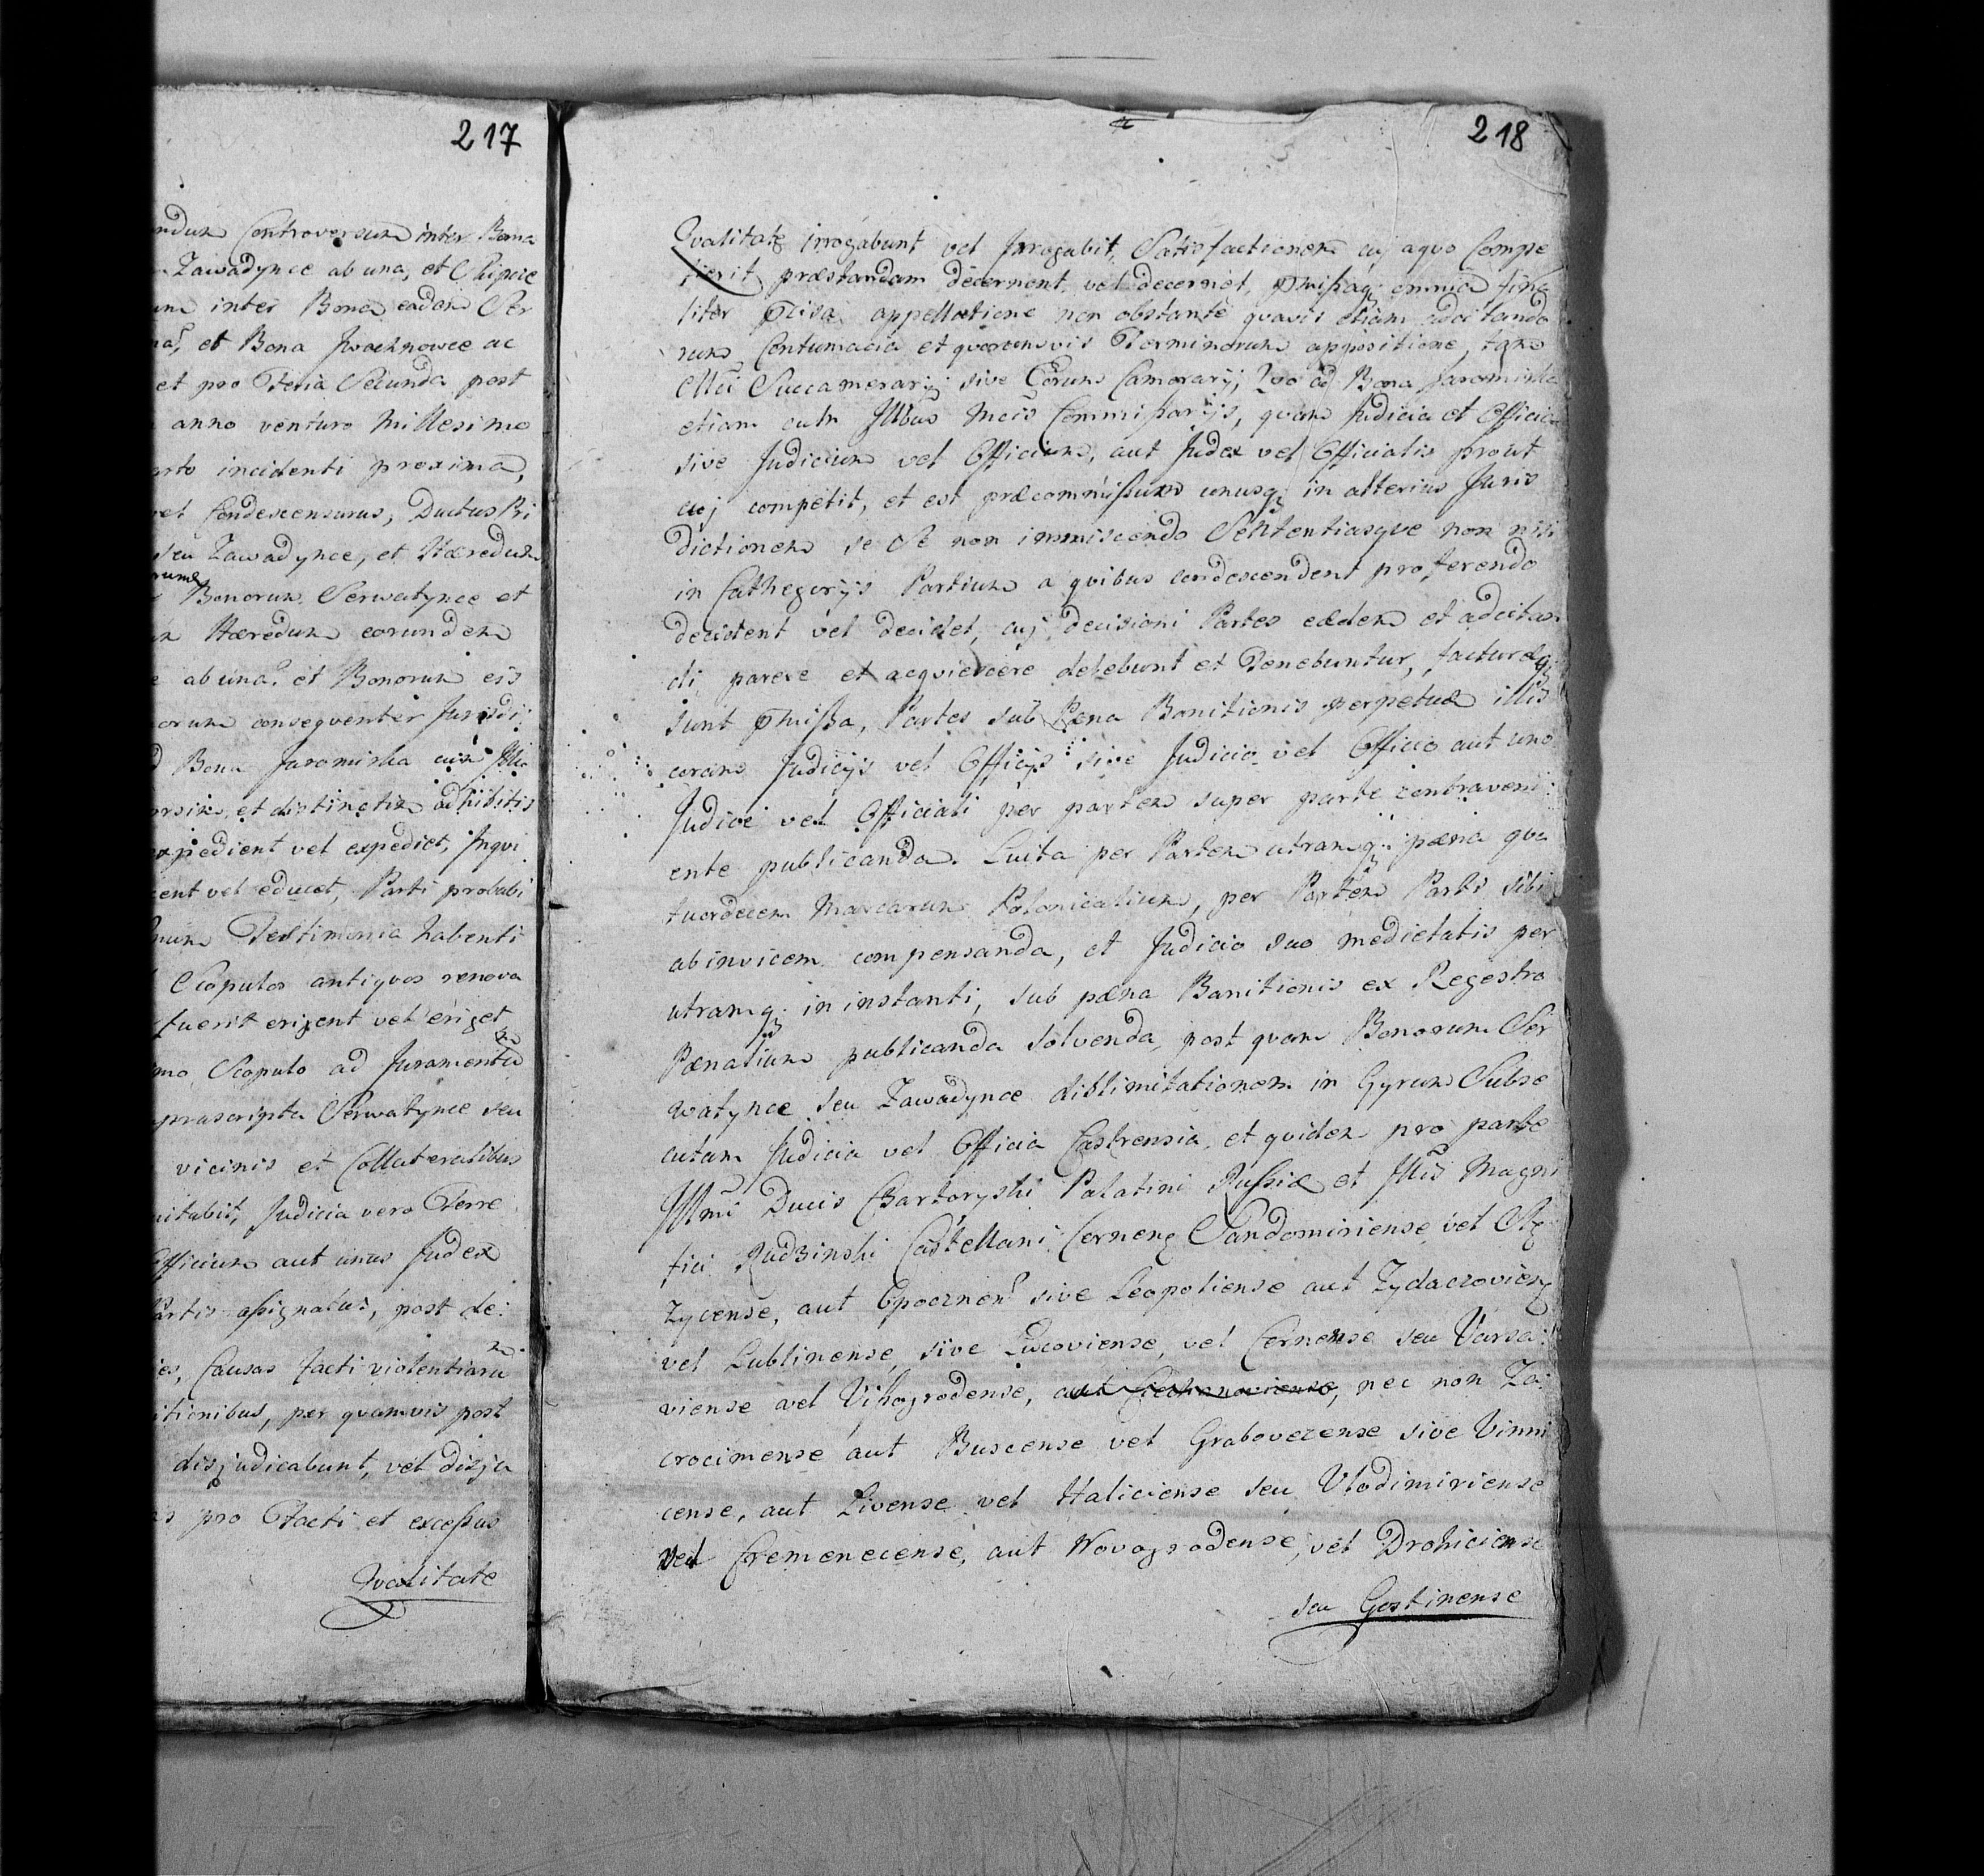 217
Controversum inter Bona
Zawadynce ab una, et
inter Bona eadem Ser
et Bona Iwachnowce ac
et pro Feria Secunda post
anno venturo Millesimo
incidenti proxima,
Condescensurus, Ductus Pri
seu Zawadynce, et Hæredum
Bonorum Serwatynce et
Hæredum eorundem
ab una et Bonorum
consequenter Jurisdi
Bona Jaromirka cum
et distinctim adhibitis
expedient vel expediet, Inqui
vel educet, Parti probabi
Testimonia habenti
Scopulos antiquos renova
fuerit erigent vel eriget
Scopulo ad Juramentu
præscripta Serwatynce seu
vicinis et Collateralibus
Judicia vero Terre
Officium aut unus Judex
assignatus, post de:
Causas facti violentiaru
per quamvis post
disjudicabunt, vel disju
pro Facti et excessus
Qvalitate
218
Qvalitate irrogabunt vel Irrogabit, Satisfactionem cuj aquo Compe
tierit præstandam decernent, vel decernet, pmissaq; omnia fina
liter appellatione non obstante quavis etiam adcitando
rum Contumacia et quorumvis Terminorum appositione, tam
Succamerarij sive Eorum Camerarij, ad Bona Jaromirka
etiam cum Illbus Mcis Commissarijs, quam Judicia et Officia
sive Judicium vel Officium, aut Judex vel Officialis prout
cuj competit, et est præcommissum unusq; in alterius Juris
dictionem se Se non immiscendo Sententiasque non nisi
in Cathegorijs Partium a quibus condescendent proferendo
decident vel decidet, cuj decisioni Partes eædem et adcitan
di parere et acquiescere debebunt et Tenebuntur, facturæq;
sunt pmissa, Partes sub Pæna Banitionis perpetuæ illis
coram Judicijs vel Officijs sive Judicio vel Officio aut uno
Judice vel Officiali per partem super parte contraveni:
ente publicanda. Luita per Partem utramq; pæna qua
tuordecem Marcarum Polonicalium, per Partem Parti sibi
abinvicem compensanda, et Judicio suo medietatis per
utramq; in instanti, sub pæna Banitionis ex Regestro
Pænalium publicanda solvenda, post quam Bonorum Ser
watynce seu Zawadynce dislimitationem in Gyrum Subse
cutam Judicia vel Officia Castrensia et quidem pro parte
Illmi Ducis Czartoryski Palatini Russiæ et Illis Magni
fici Rudzinski Castellani Cernen Sandomiriense vel
zycense, aut Opocznen sive Leopoliense aut Zydaczovien
vel Lublinense, sive Lucoviense, vel Cernense seu Varsa:
viense vel Vihogrodense, aut Ciechanoviense, nec non Za:
crocimense aut Buscense vel Grabovecense sive Vinni
cense, aut Livense vel Haliciense seu Vlodimiriense
vel Cremenecense, aut Novogrodense, vel Drohiciense
seu Gostinense